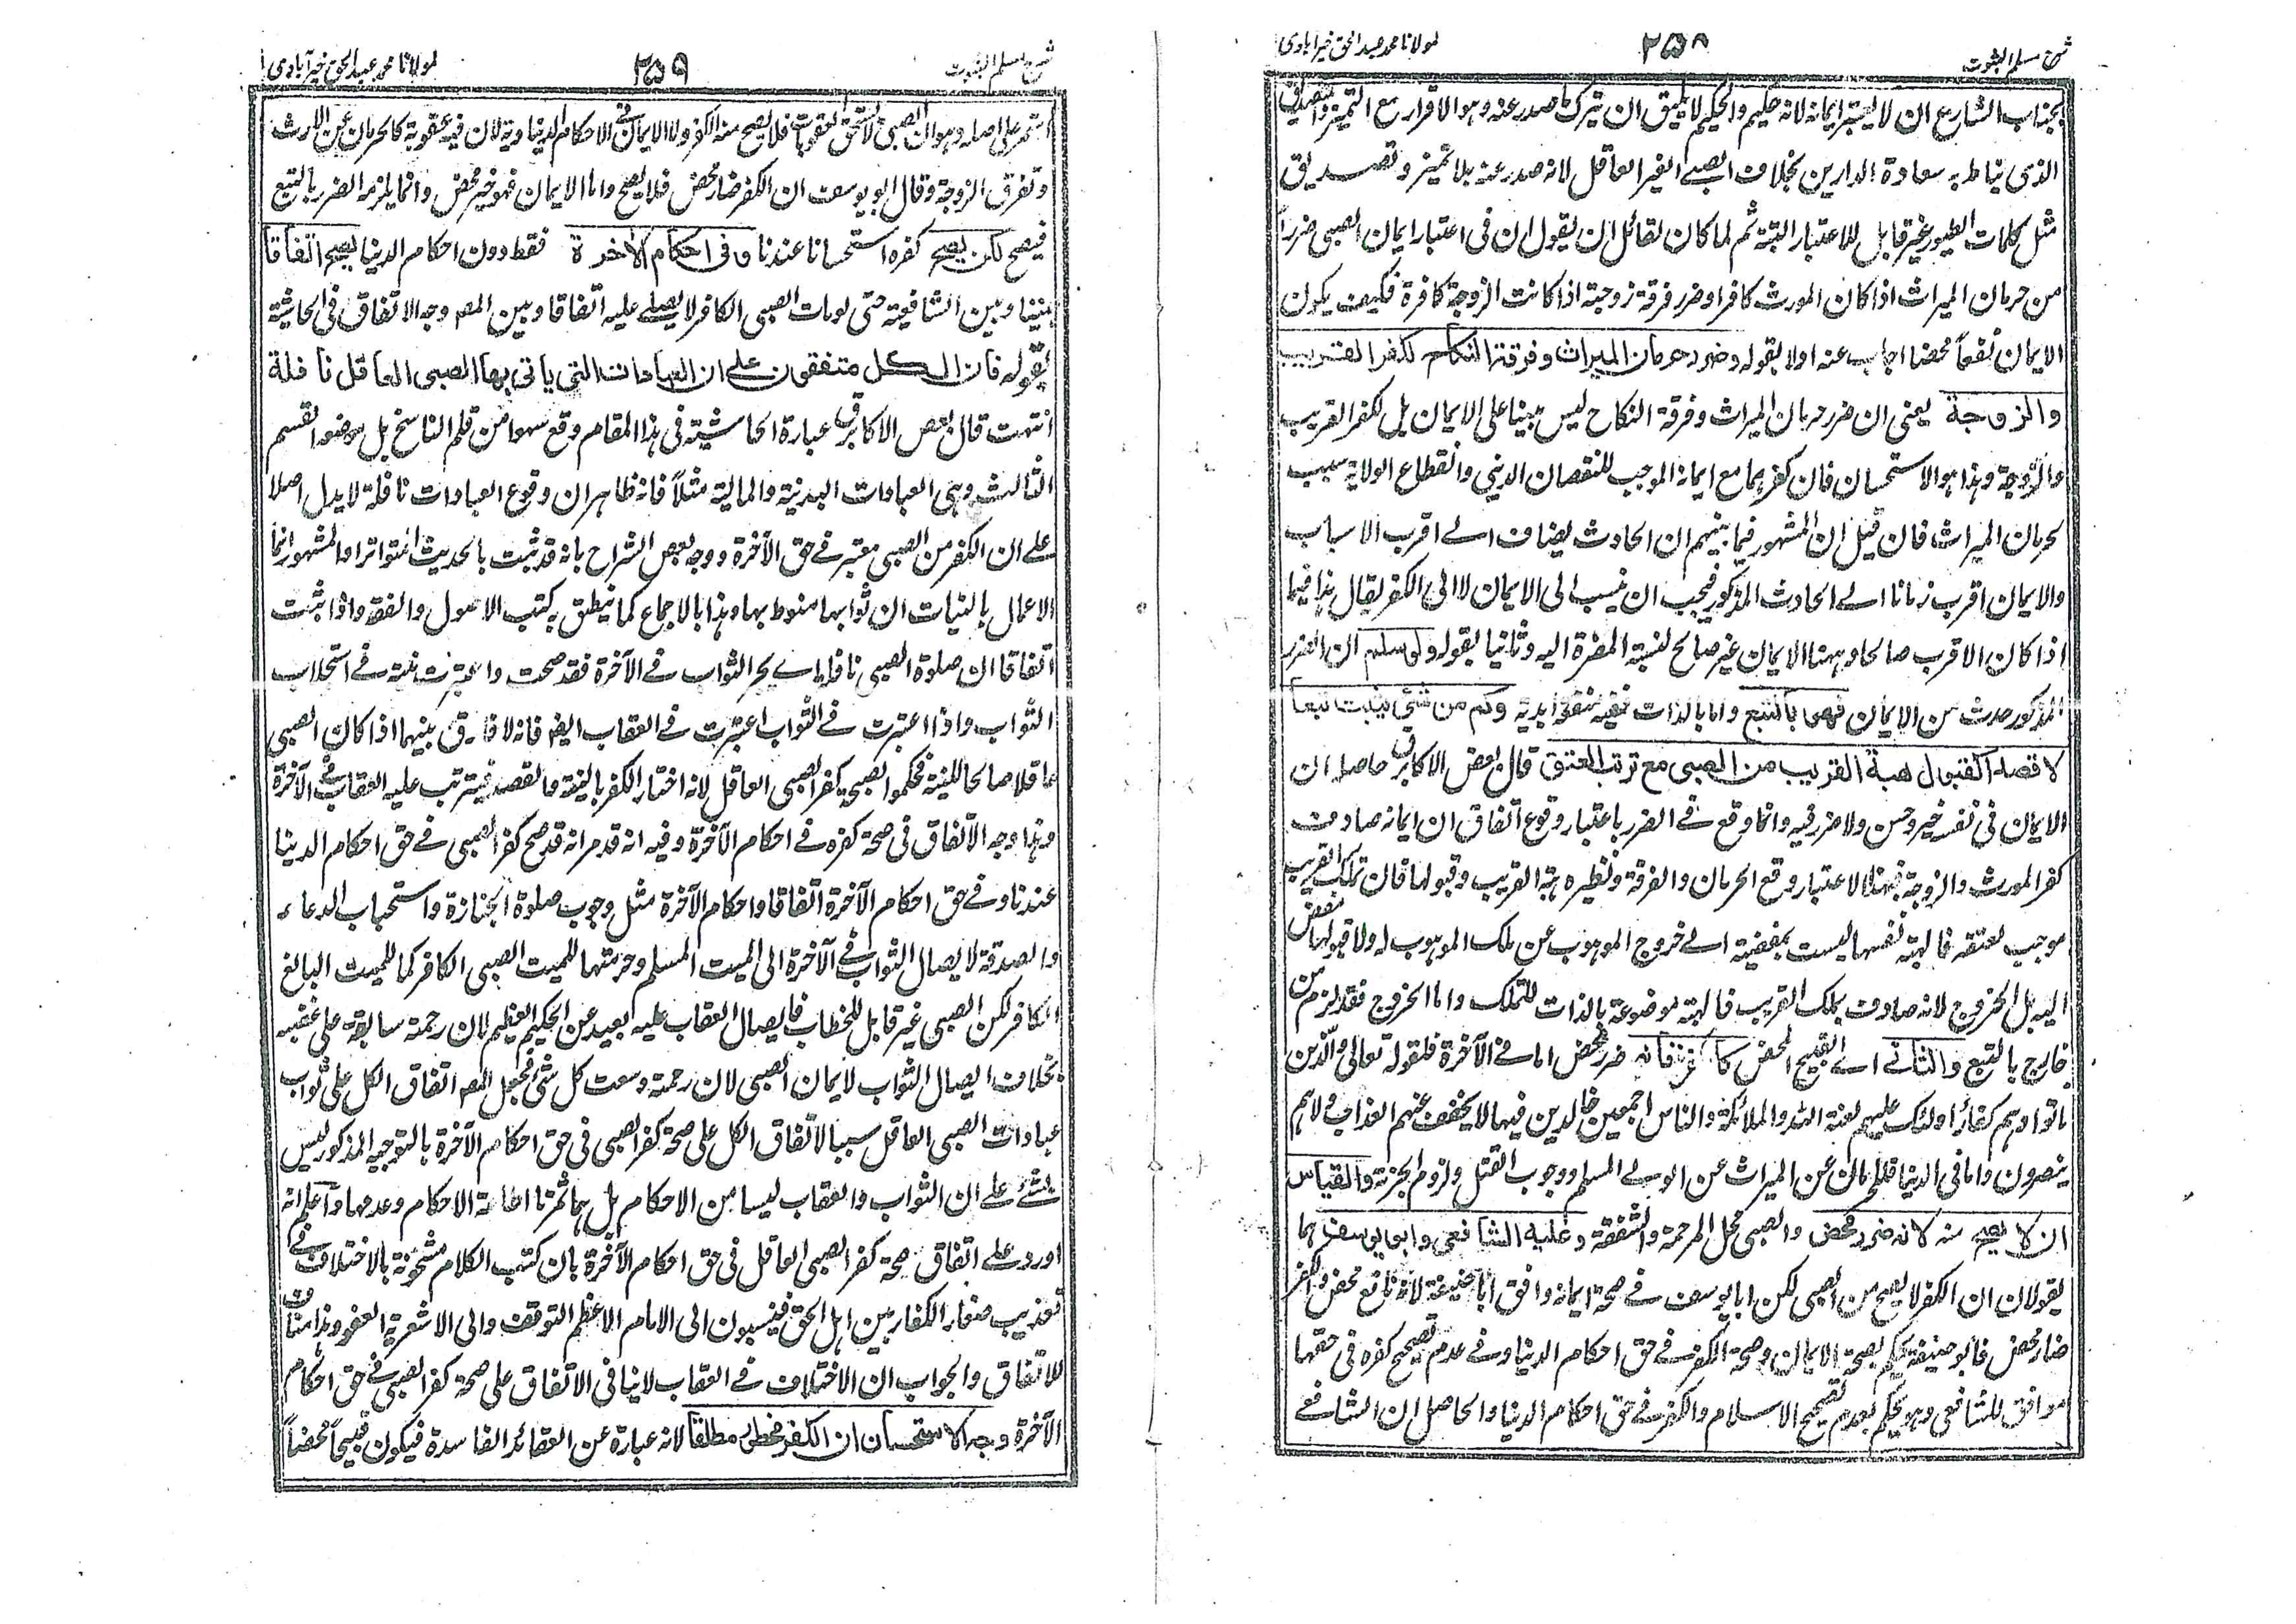 شرح مسلم الثبوت
۲۵۸
لمولانا محمد عبد الحق خیرآبادی
بجناب الشارع ان لا یعتبر ایمانه لانه حکیم والحکیم لا یلیق ان یترک ما صدر عنه وهو الاقرار مع التمیز والتصدیق
الذی یناط به سعادة الدارین بخلاف الصبے الغیر العاقل لانه صدر عنه بلا تمیز وتصدیق
مثل کلمات الطیور غیر قابل للاعتبار البتة ثم لما کان لقائل ان یقول ان فی اعتبار ایمان الصبی ضرراً
من حرمان المیراث اذا کان المورث کافرا وضرر فرقة زوجیة اذا کانت الزوجة کافرة فکیف یکون
الایمان نفعاً محضا اجاب عنه اولا بقوله وضرر حرمان المیراث وفرقة النکاح لکفر القریب
والزوجة یعنی ان ضرر حرمان المیراث وفرقة النکاح لیس مبنیا علی الایمان بل لکفر القریب
والزوجة وهذا هو الاستحسان فان کفرهما مع ایمانه الموجب للنقصان الدینی وانقطاع الولایة سبب
لحرمان المیراث فان قیل ان المشهور فیما بینهم ان الحادث یضاف الے اقرب الاسباب
والایمان اقرب زمانا الے الحادث المذکور فیجب ان ینسب الی الایمان لا الی الکفر یقال هذا فیما
اذا کان الاقرب صالحا وههنا الایمان غیر صالح لنسبة المضرة الیه وثانیا بقوله ولو سلم ان الضرر
المذکور حدث من الایمان فهما بالتبع واما بالذات ففیه منفعة ابدیة وکم من شئی یثبت تبعا
لا قصدا کقبول هبة القریب من الصبی مع ترتب العتق قال بعض الاکابر حاصله ان
الایمان فی نفسه خیر وحسن ولا ضرر فیه وانما وقع فے الضرر باعتبار وقوع اتفاق ان ایمانه صادف
کفر المورث والزوجة فبهذا الاعتبار وقع الحرمان والفرقة ونظیره هبة القریب وقبولها فان تملک القریب
موجب لعتقه فالهبة نفسها لیست بمفضیة الے خروج الموهوب عن ملک الموهوب له ولا قبولها مفض
الیه بل الخروج لانه صادف ملک القریب فالهبة موضوعة بالذات للتملک واما الخروج فقد لزم من
خارج بالتبع والثانے اے القبیح المحض کالکفر فانه ضرر محض اما فے الآخرة فلقوله تعالی والذین
ماتوا وهم کفار اولئک علیهم لعنة الله والملائکة والناس اجمعین خالدین فیها لا یخفف عنهم العذاب ولا هم
ینصرون واما فی الدنیا فللحرمان عن المیراث عن الولے المسلم ووجوب القتل ولزوم الجزیة والقیاس
ان لا یصح منه لانه ضرر محض والصبی محل المرحمة والشفقة وعلیه الشافعی وابو یوسف هما
یقولان ان الکفر لا یصح من الصبی لکن ابا یوسف فے صحة ایمانه وافق ابا حنیفة لانه نافع محض والکفر
ضار محض فابو حنیفة یحکم بصحة الایمان وصحة الکفر فے حق احکام الدنیا وفے عدم تصحیح کفره فی حقها
موافق للشافعی وهو یحکم بعدم تصحیح الاسلام والکفر فے حق احکام الدنیا والحاصل ان الشافعے
شرح مسلم الثبوت
۲۵۹
لمولانا محمد عبد الحق خیرآبادی
استمر علی اصله وهو ان الصبی لا یستحق العقوبات فلا یصح منه الکفر ولا الایمان فی الاحکام الدنیاویة لان فیه عقوبة کالحرمان عن الارث
وتفرق الزوجة وقال ابو یوسف ان الکفر ضار محض فلا یصح واما الایمان فهو خیر محض وانما یلزمه الضرر بالتبع
فیصح لکن یصح کفره استحسانا عندنا وفی احکام الآخرة فقط دون احکام الدنیا یصح اتفاقا
بیننا وبین الشافعیة حتی لو مات الصبی الکافر لا یصلے علیه اتفاقا وبین المصـ وجه الاتفاق فی الحاشیة
بقوله فان الکل متفقون علی ان العبادات التی یاتی بها الصبی العاقل نافلة
انتهت قال بعض الاکابر عبارة الحاشیة فی هذا المقام وقع سهوا من قلم الناسخ بل موضعه القسم
الثالث وهی العبادات البدنیة والمالیة مثلاً فانه ظاهر ان وقوع العبادات نافلة لا یدل اصلا
علے ان الکفر من الصبی معتبر فے حق الآخرة ووجه بعض الشراح بانه قد ثبت بالحدیث المتواتر او المشهور انما
الاعمال بالنیات ان ثوابها منوط بها وهذا بالاجماع کما ینطق به کتب الاصول والفقه واذا ثبت
اتفاقا ان صلوة الصبی نافلة اے یحرز الثواب فے الآخرة فقد صحت واعتبرت نیته فے استجلاب
الثواب واذا اعتبرت فے الثواب اعتبرت فے العقاب ایضا فانه لا فارق بینهما اذا کان الصبی
عاقلا صالحا للنیة فحکموا بصحة کفر الصبی العاقل لانه اختار الکفر بالنیة والقصد فیترتب علیه العقاب فے الآخرة
وهذا وجه الاتفاق فی صحة کفره فے احکام الآخرة وفیه انه قد مر انه قد صح کفر الصبی فے حق احکام الدنیا
عندنا وفے حق احکام الآخرة اتفاقا واحکام الآخرة مثل وجوب صلوة الجنازة واستحباب الدعاء
والصدقة لایصال الثواب فے الآخرة الی المیت المسلم وحرمتها للمیت الصبی الکافر کما للمیت البالغ
الکافر لکن الصبی غیر قابل للخطاب فایصال العقاب علیه بعید عن الحکیم العظیم لان رحمته سابقة علی غضبه
بخلاف ایصال الثواب لایمان الصبی لان رحمته وسعت کل شئ فجعل المصـ اتفاق الکل علی ثواب
عبادات الصبی العاقل سببا لاتفاق الکل علی صحة کفر الصبی فی حق احکام الآخرة بالتوجیه المذکور لیس
بشئے علے ان الثواب والعقاب لیسا من الاحکام بل هما ثمرتا اطاعة الاحکام وعدمها واعلم انه
اورد علے اتفاق صحة کفر الصبی العاقل فی حق احکام الآخرة بان کتب الکلام مشحونة بالاختلاف فے
تعذیب صغار الکفار بین اهل الحق فینسبون الی الامام الاعظم التوقف والی الاشعریة العفو وهذا مناف
للاتفاق والجواب ان الاختلاف فے العقاب لا ینافی الاتفاق علی صحة کفر الصبی فے حق احکام
الآخرة وجه الاستحسان ان الکفر محظور مطلقا لانه عبارة عن العقائد الفاسدة فیکون قبیحاً محضاً